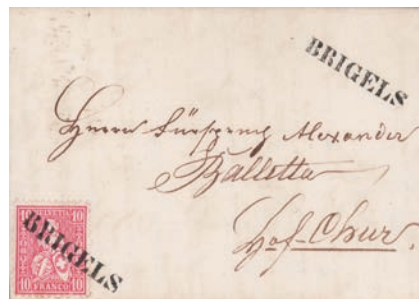 BRIGELS
Herrn Fürsprech Alexander
Balletta
Hof-Chur.
10 HELVETIA 10
BRIGELS
10 FRANCO 10